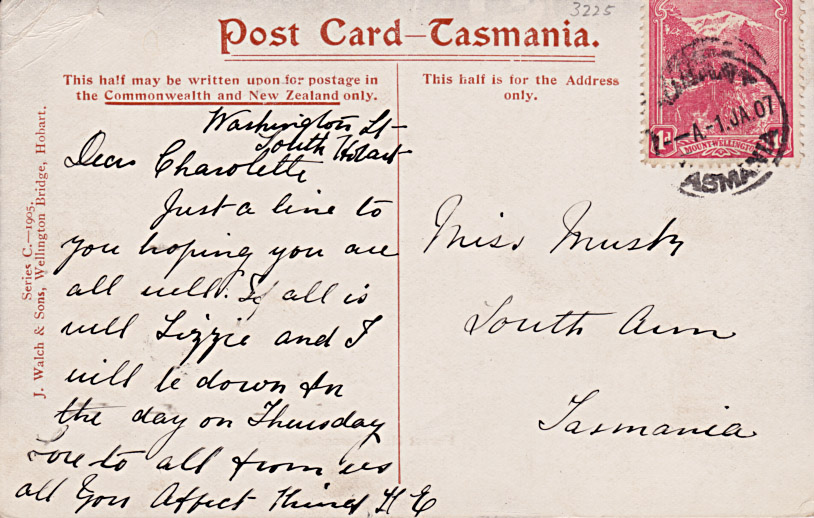 3225
Post Card–Tasmania.
This half may be written upon for postage in
the Commonwealth and New Zealand only.
This half is for the Address
only.
Series C.—1905.
J. Walch & Sons, Wellington Bridge, Hobart.
1d MOUNT WELLINGTON
A-1.JA.07
TASMANIA
Washington St-
South Hobart
Dear Charolette
Just a line to
you hoping you are
all well. If all is
well Lizzie and I
will be down for
the day on Thursday
Love to all from us
all Your Affect Friend H E
Miss
South Arm
Tasmania